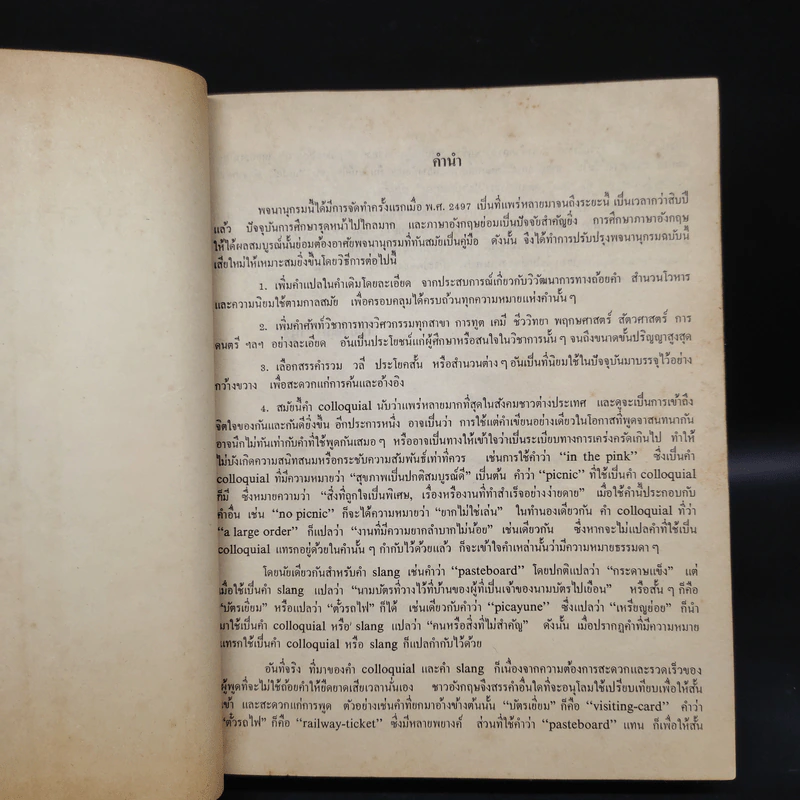 คำนำ
พจนานุกรมนี้ได้มีการจัดทำครั้งแรกเมื่อ พ.ศ. 2497 เป็นที่แพร่หลายมาจนถึงระยะนี้ เป็นเวลากว่าสิบปี
แล้ว ปัจจุบันการศึกษารุดหน้าไปไกลมาก และภาษาอังกฤษย่อมเป็นปัจจัยสำคัญยิ่ง การศึกษาภาษาอังกฤษ
ให้ได้ผลสมบูรณ์นั้นย่อมต้องอาศัยพจนานุกรมที่ทันสมัยเป็นคู่มือ ดังนั้น จึงได้ทำการปรับปรุงพจนานุกรมฉบับนี้
เสียใหม่ให้เหมาะสมยิ่งขึ้นโดยวิธีการต่อไปนี้
1. เพิ่มคำแปลในคำเดิมโดยละเอียด จากประสบการณ์เกี่ยวกับวิวัฒนาการทางถ้อยคำ สำนวนโวหาร
และความนิยมใช้ตามกาลสมัย เพื่อครอบคลุมได้ครบถ้วนทุกความหมายแห่งคำนั้น ๆ
2. เพิ่มคำศัพท์วิชาการทางวิศวกรรมทุกสาขา การทูต เคมี ชีววิทยา พฤกษศาสตร์ สัตวศาสตร์ การ
ดนตรี ฯลฯ อย่างละเอียด อันเป็นประโยชน์แก่ผู้ศึกษาหรือสนใจในวิชาการนั้น ๆ จนถึงขนาดขั้นปริญญาสูงสุด
3. เลือกสรรคำรวม วลี ประโยคสั้น หรือสำนวนต่าง ๆ อันเป็นที่นิยมใช้ในปัจจุบันมาบรรจุไว้อย่าง
กว้างขวาง เพื่อสะดวกแก่การค้นและอ้างอิง
4. สมัยนี้คำ colloquial นับว่าแพร่หลายมากที่สุดในสังคมชาวต่างประเทศ และดูจะเป็นการเข้าถึง
จิตใจของกันและกันดียิ่งขึ้น อีกประการหนึ่ง อาจเป็นว่า การใช้แต่คำเขียนอย่างเดียวในโอกาสที่พูดจาสนทนากัน
อาจนึกไม่ทันเท่ากับคำที่ใช้พูดกันเสมอ ๆ หรืออาจเป็นทางให้เข้าใจว่าเป็นระเบียบทางการเคร่งครัดเกินไป ทำให้
ไม่บังเกิดความสนิทสนมหรือกระชับความสัมพันธ์เท่าที่ควร เช่นการใช้คำว่า “in the pink” ซึ่งเป็นคำ
colloquial ที่มีความหมายว่า “สุขภาพเป็นปกติสมบูรณ์ดี” เป็นต้น คำว่า “picnic” ที่ใช้เป็นคำ colloquial
ก็มี ซึ่งหมายความว่า “สิ่งที่ถูกใจเป็นพิเศษ, เรื่องหรืองานที่ทำสำเร็จอย่างง่ายดาย” เมื่อใช้คำนี้ประกอบกับ
คำอื่น เช่น “no picnic” ก็จะได้ความหมายว่า “ยากไม่ใช่เล่น” ในทำนองเดียวกัน คำ colloquial ที่ว่า
“a large order” ก็แปลว่า “งานที่มีความยากลำบากไม่น้อย” เช่นเดียวกัน ซึ่งหากจะไม่แปลคำที่ใช้เป็น
colloquial แทรกอยู่ด้วยในคำนั้น ๆ กำกับไว้ด้วยแล้ว ก็จะเข้าใจคำเหล่านั้นว่ามีความหมายธรรมดา ๆ
โดยนัยเดียวกันสำหรับคำ slang เช่นคำว่า “pasteboard” โดยปกติแปลว่า “กระดาษแข็ง” แต่
เมื่อใช้เป็นคำ slang แปลว่า “นามบัตรที่วางไว้ที่บ้านของผู้ที่เป็นเจ้าของนามบัตรไปเยือน” หรือสั้น ๆ ก็คือ
“บัตรเยี่ยม” หรือแปลว่า “ตั๋วรถไฟ” ก็ได้ เช่นเดียวกับคำว่า “picayune” ซึ่งแปลว่า “เหรียญย่อย” ก็นำ
มาใช้เป็นคำ colloquial หรือ slang แปลว่า “คนหรือสิ่งที่ไม่สำคัญ” ดังนั้น เมื่อปรากฏคำที่มีความหมาย
แทรกใช้เป็นคำ colloquial หรือ slang ก็แปลกำกับไว้ด้วย
อันที่จริง ที่มาของคำ colloquial และคำ slang ก็เนื่องจากความต้องการสะดวกและรวดเร็วของ
ผู้พูดที่จะไม่ใช้ถ้อยคำให้ยืดยาดเสียเวลานั่นเอง ชาวอังกฤษจึงสรรคำอื่นใดที่จะอนุโลมใช้เปรียบเทียบเพื่อให้สั้น
เข้า และสะดวกแก่การพูด ตัวอย่างเช่นคำที่ยกมาอ้างข้างต้นนั้น “บัตรเยี่ยม” ก็คือ “visiting-card” คำว่า
“ตั๋วรถไฟ” ก็คือ “railway-ticket” ซึ่งมีหลายพยางค์ ส่วนที่ใช้คำว่า “pasteboard” แทน ก็เพื่อให้สั้น